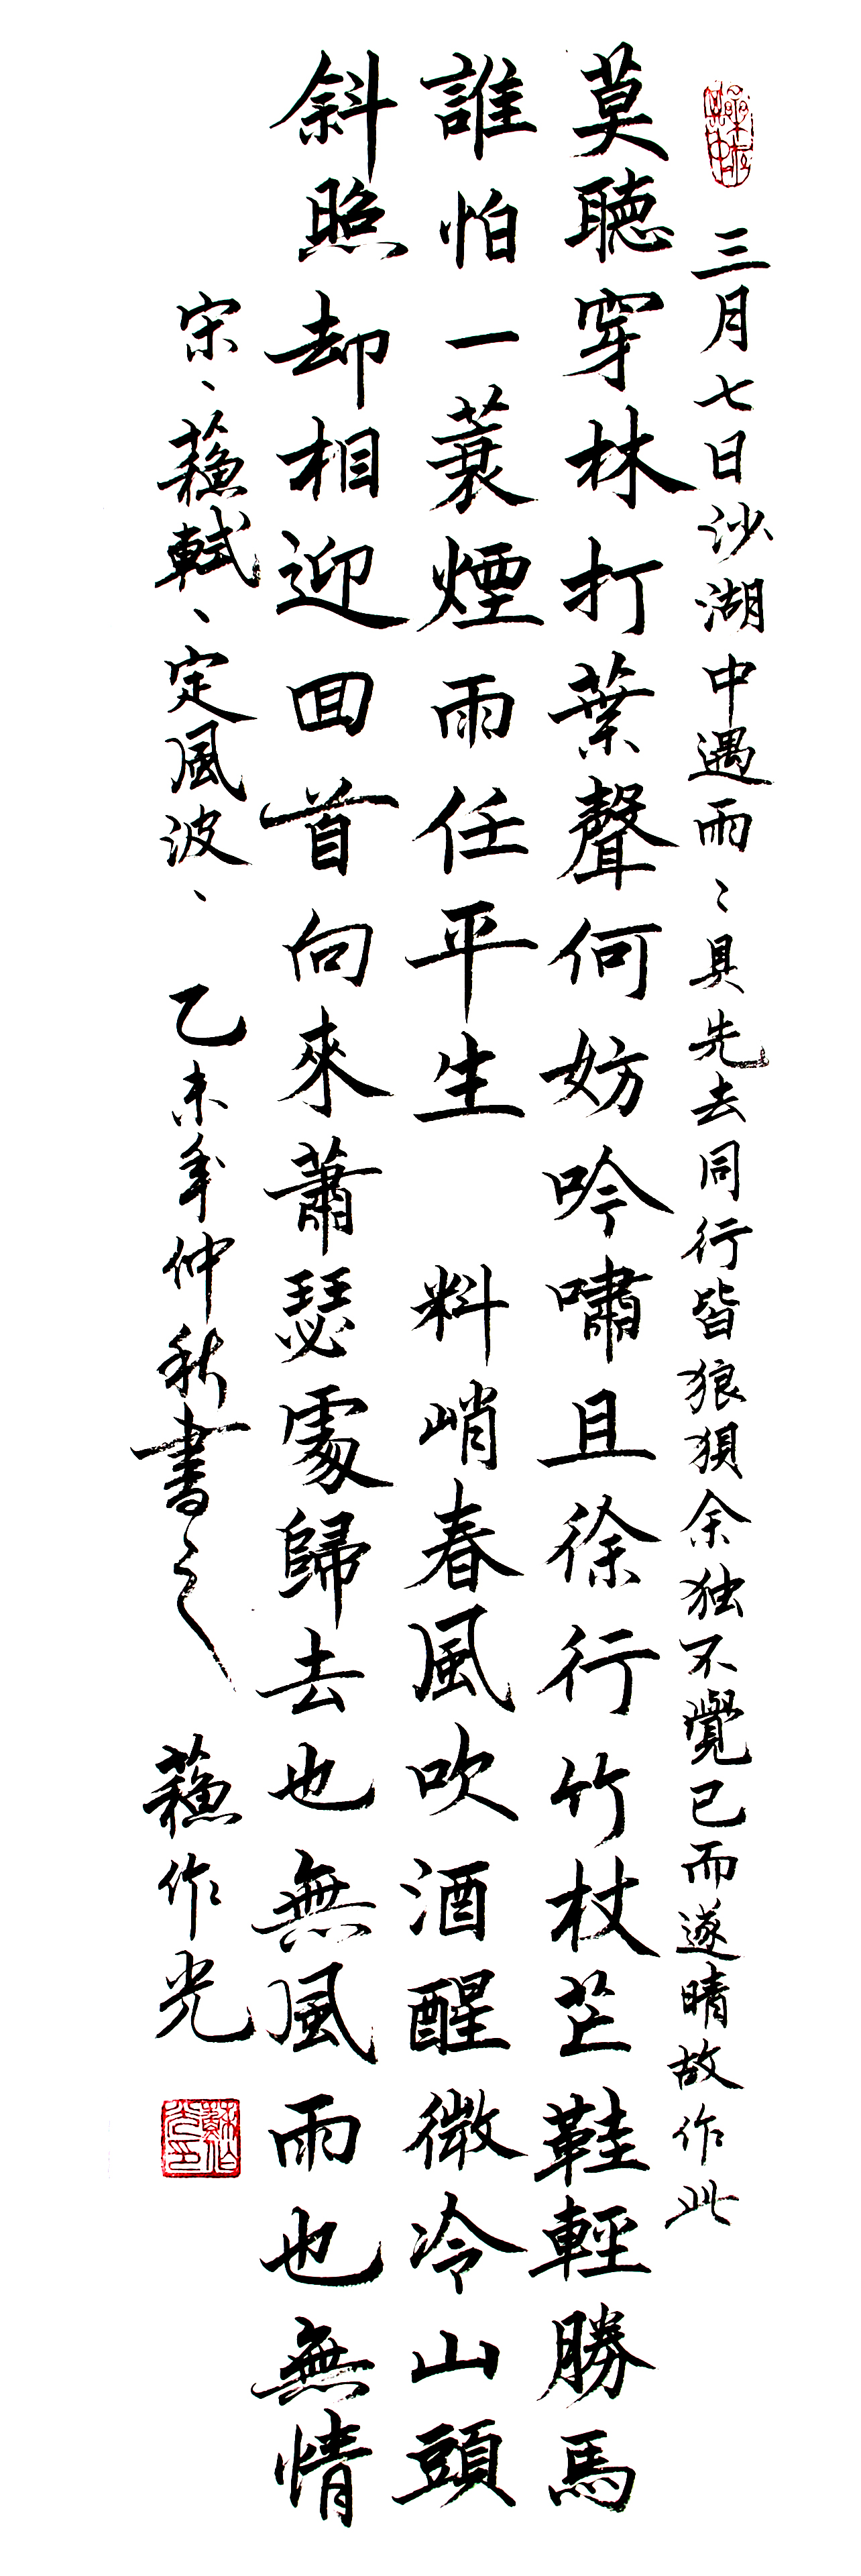 三月七日沙湖中遇雨〻具先去同行皆狼狽余独不覺已而遂晴故作此
莫聽穿林打葉聲何妨吟嘯且徐行竹杖芒鞋輕勝馬
誰怕一蓑煙雨任平生 料峭春風吹酒醒微冷山頭
斜照却相迎回首向來蕭瑟處歸去也無風雨也無情
宋、蘇軾、定風波、 乙未年仲秋書之 蘇作光
蘇作光印